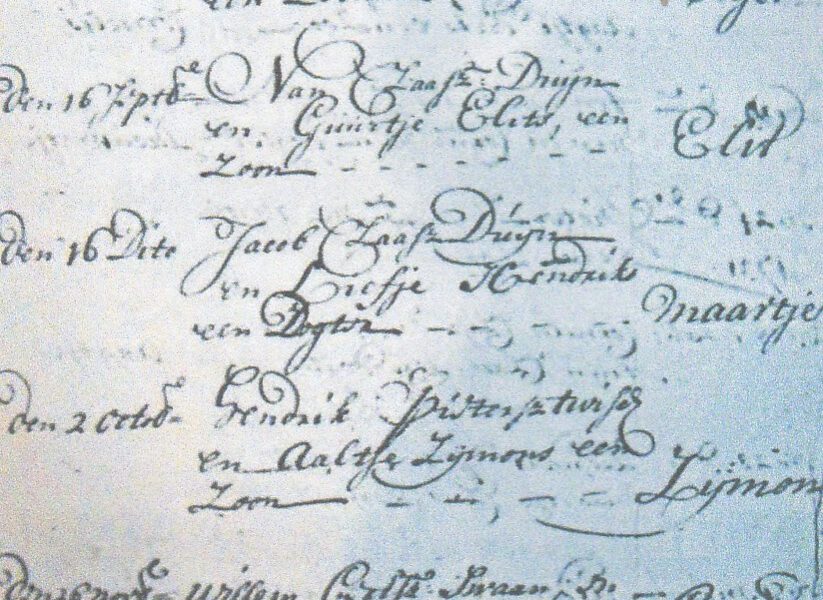 den 16 Septbe Nan Claasz: Duijn
en Guurtje Elits, een Elit
Zoon
den 16 Dito Jacob Claasz Duijn
en Liefje Hendriks
een Dogter maartje
den 2 octobe Hendrik Pietersz twisk
en Aaltje Zijmons een
Zoon Zijmon
Willem